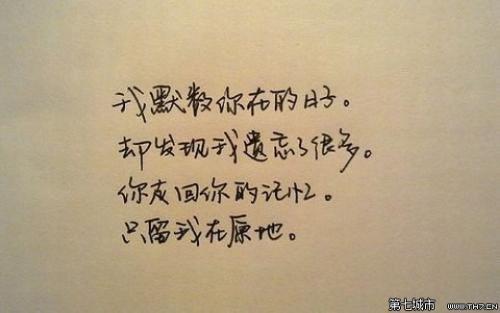 我默数你在的日子。
却发现我遗忘了很多。
你灰回你的记忆。
只留我在原地。
第七城市 WWW.TH7.CN